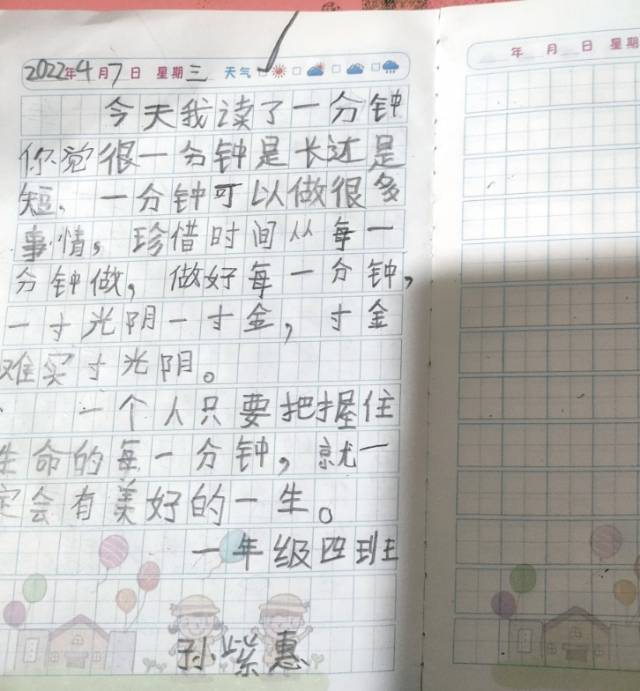 2022年4月7日 星期三 天气
年 月 日 星期
今天我读了一分钟
你觉很一分钟是长还是
短、一分钟可以做很多
事情。珍惜时间从每一
分钟做，做好每一分钟，
一寸光阴一寸金，寸金
难买寸光阴。
一个人只要把握住
生命的每一分钟，就一
定会有美好的一生。
一年级四班
孙紫惠